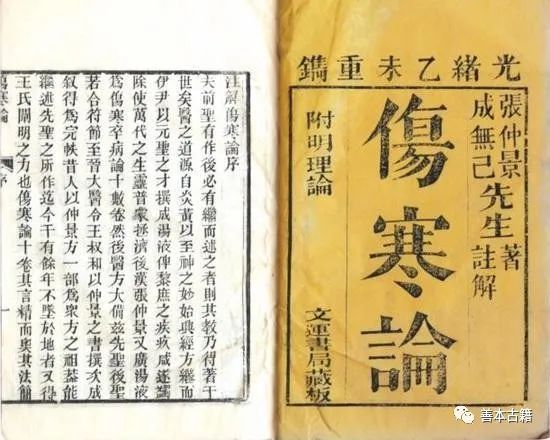 光緒乙未重鐫
張仲景
成無己
先生
著
註解
傷寒論
附明理論
文運書局藏板
注解傷寒論序
夫前聖有作後必有繼而述之者則其教乃得著于
世矣醫之道源自炎黃以至神之妙始興經方繼而
伊尹以元聖之才撰成湯液俾黎庶之疾疚咸遂蠲
除使萬代之生靈普蒙拯濟後漢張仲景又廣湯液
爲傷寒卒病論十數卷然後醫方大備茲先聖後聖
若合符節至晉太醫令王叔和以仲景之書撰次成
敘得爲完帙昔人以仲景方一部爲衆方之祖蓋能
繼述先聖之所作迄今千有餘年不墜於地者又得
王氏闡明之力也傷寒論十卷其言精而奧其法簡
傷寒論
序
一
善本古籍